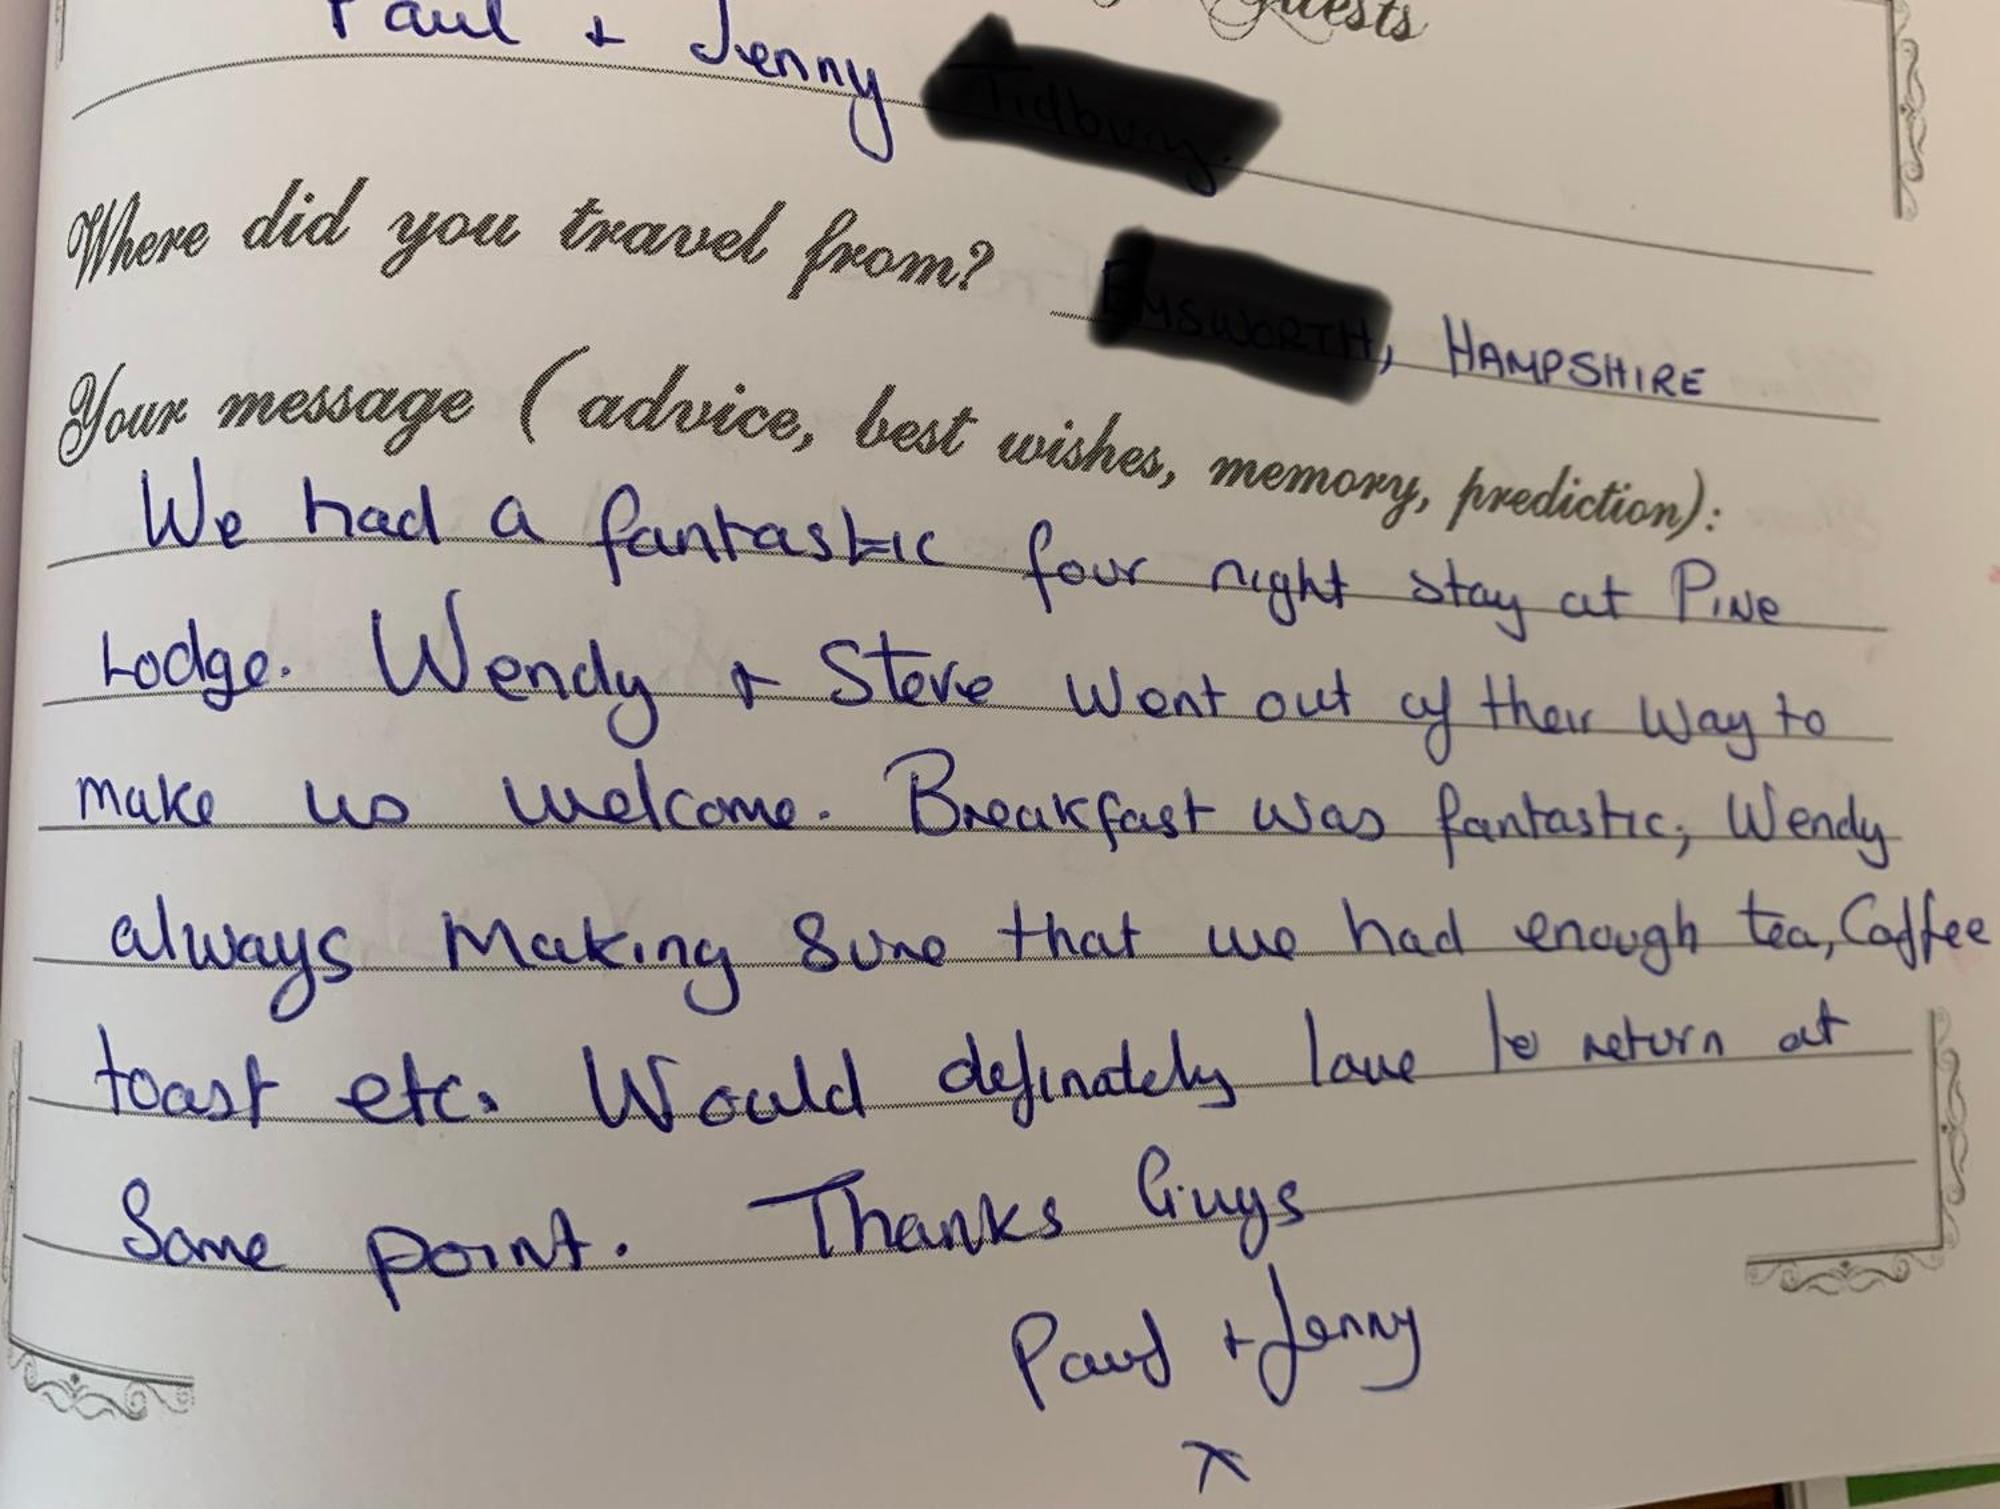 Guests
Paul + Jenny
Where did you travel from? , HAMPSHIRE
Your message (advice, best wishes, memory, prediction):
We had a fantastic four night stay at Pine
Lodge. Wendy + Steve went out of their way to
make us welcome. Breakfast was fantastic, Wendy
always making sure that we had enough tea, Coffee
toast etc. Would definately love to return at
Some point. Thanks Guys
Paul + Jenny
x